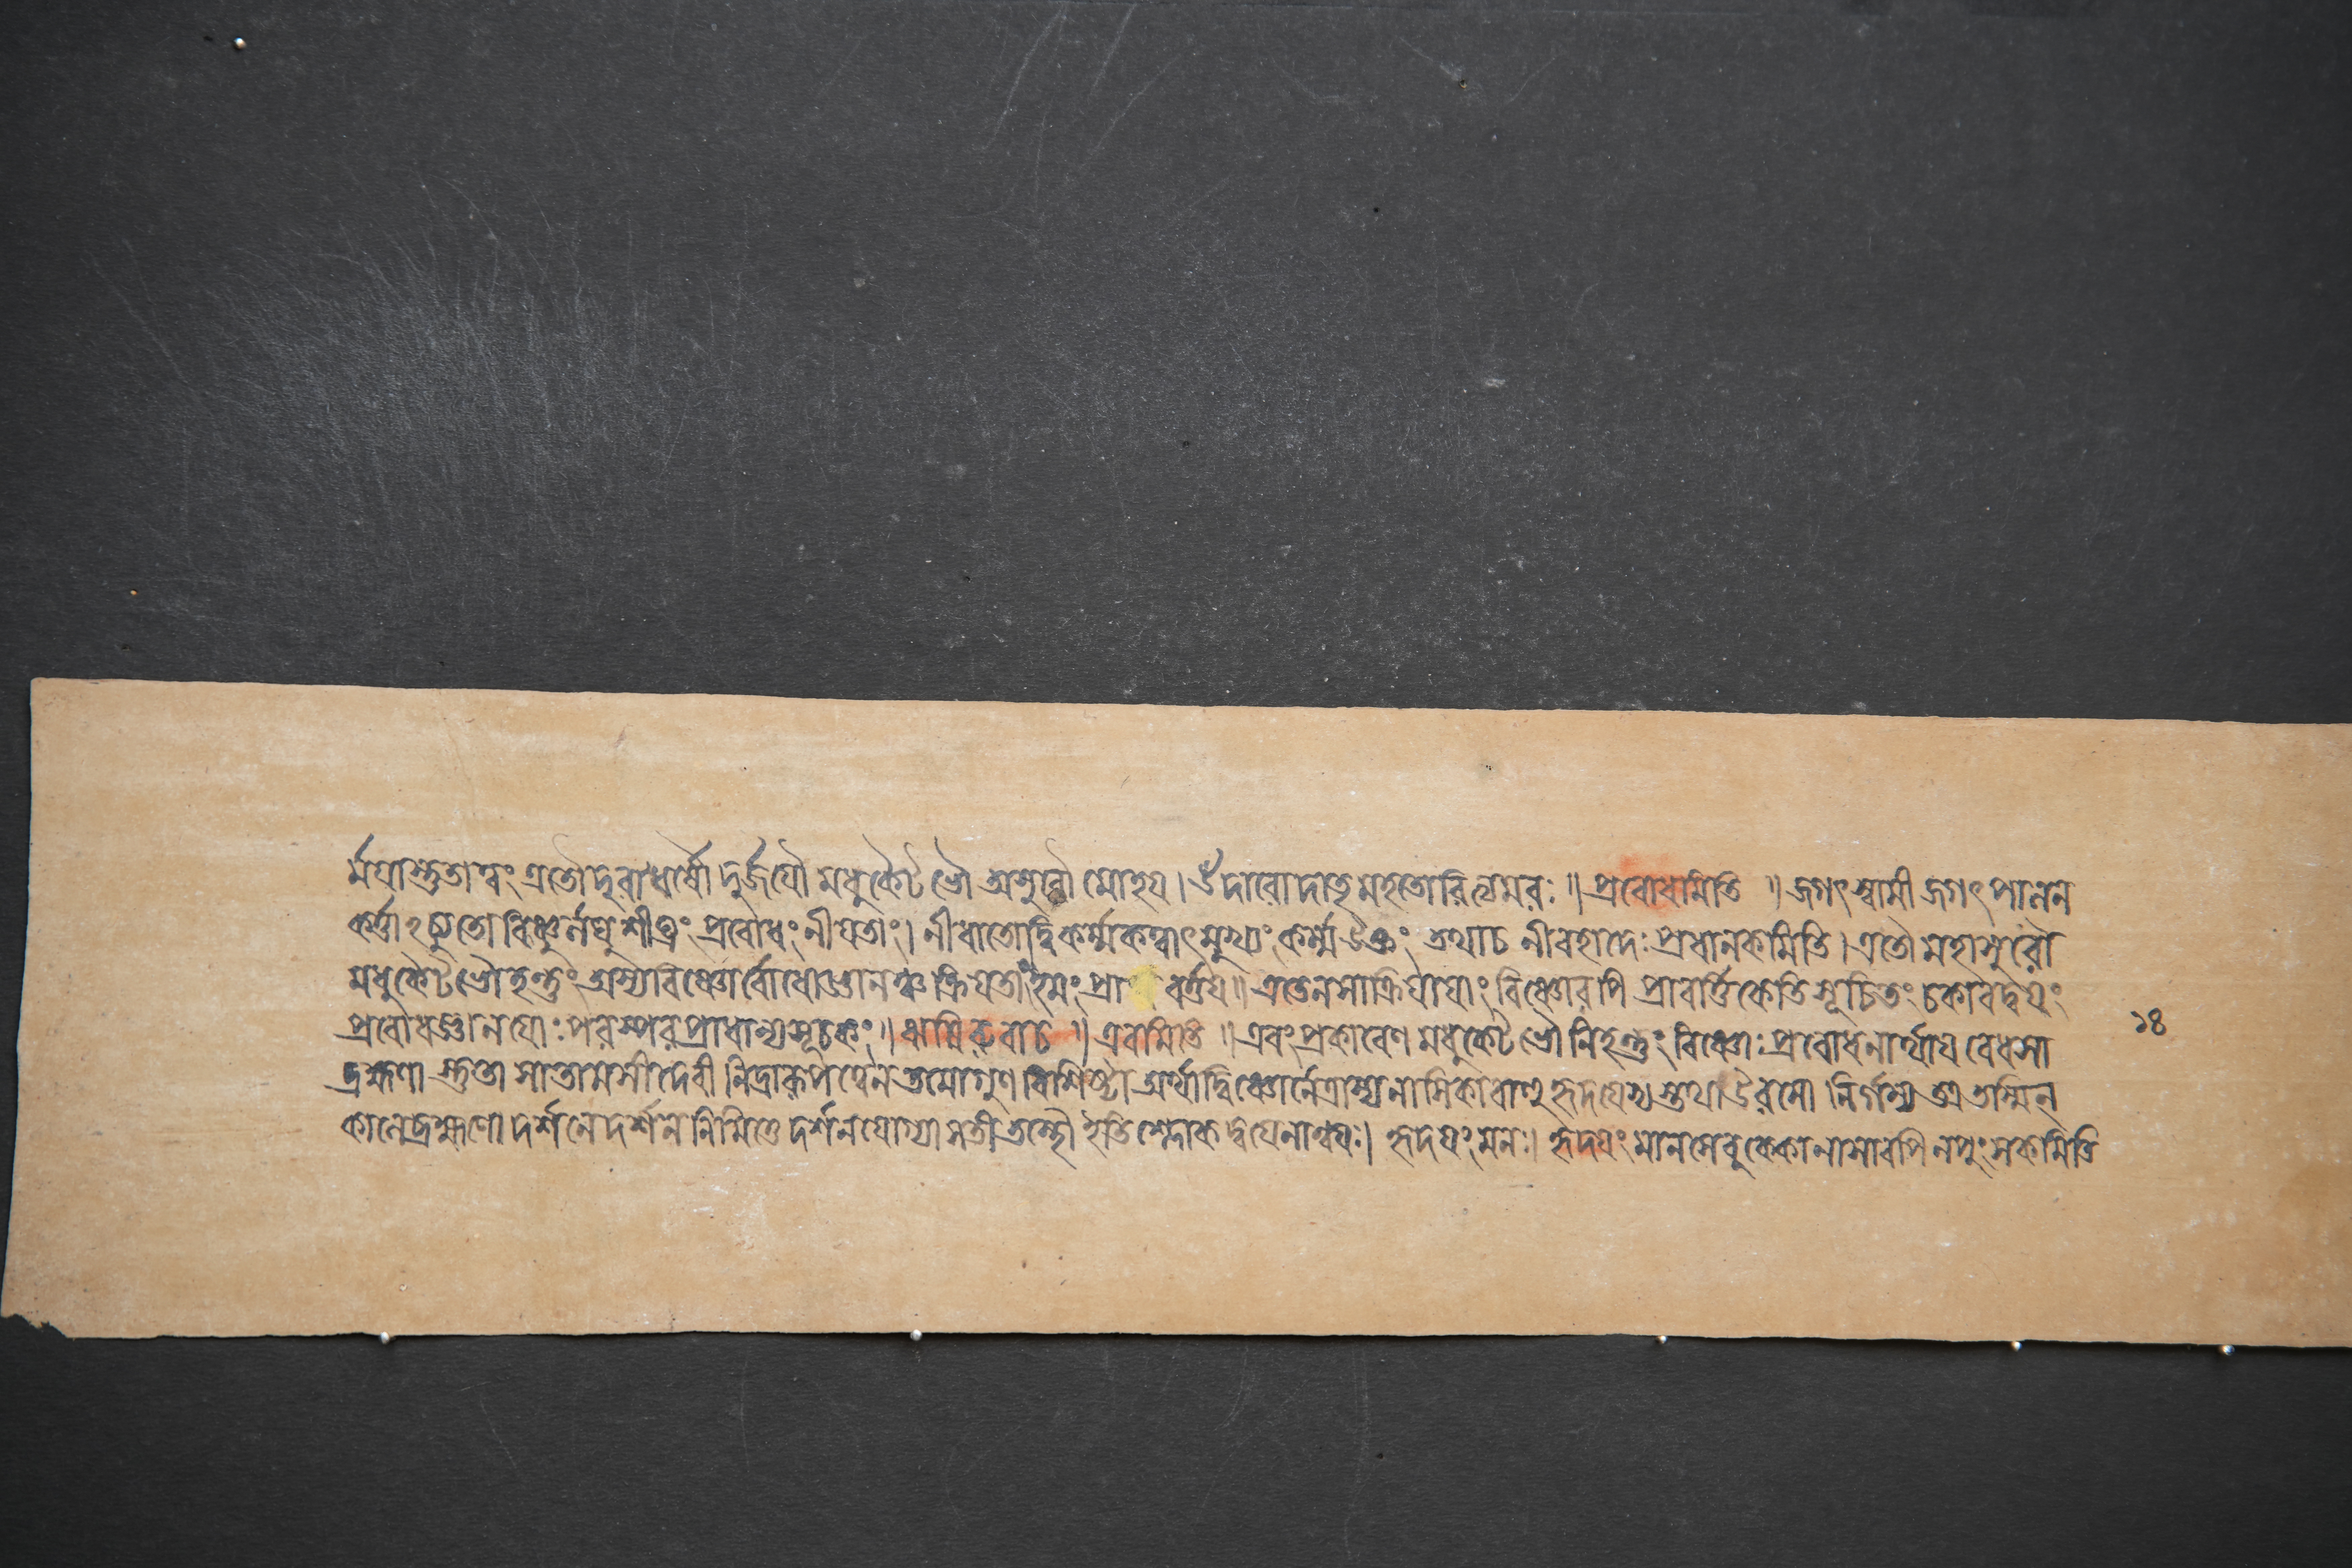 র্ম্ময়াস্তুতাত্বং এতৌ দুরাধর্ষৌ দুর্জযৌ মধুকৈটভৌ অসুরৌ মোহয। ঔদারো দাতৃমহতোরিত্যমরঃ ॥ প্রবোধমিতি ॥ জগৎস্বামী জগৎপালন
কর্ত্তাঽচ্যুতো বিষ্ণুর্লঘু শীঘ্রং প্রবোধং নীযতাং। নীধাতোর্দ্বিকর্ম্মকত্বাৎ মুখ্যং কর্ম্ম উক্তং তথাচ নীবহাদেঃ প্রধানকমিতি। এতৌ মহাসুরৌ
মধুকৈটভৌ হন্তুং অস্য বিষ্ণোর্বোধো জ্ঞানঞ্চ ক্রিযতাং ইমং প্রা বর্ত্তয॥ এতেন সাক্রিযাযাং বিষ্ণোরপি প্রাবর্ত্তিকেতি সূচিতং চকারদ্বযং
প্রবোধজ্ঞানযোঃ পরস্পরপ্রাধান্যসূচকং॥ ঋষিরুবাচ ॥ এবমিতি ॥ এবং প্রকারেণ মধুকৈটভৌ নিহন্তুং বিষ্ণোঃ প্রবোধনার্থায বেধসা
ব্রহ্মণা স্তুতা সা তামসী দেবী নিদ্রারূপত্বেন তমোগুণবিশিষ্টা অর্থাদ্বিষ্ণোর্নেত্রাস্যনাসিকাবাহুহৃদযেভ্যস্তথা উরসো নির্গম্য অত্র তস্মিন্
কালে ব্রহ্মণো দর্শনে দর্শননিমিত্তে দর্শনযোগ্যা সতী তস্থৌ ইতি শ্লোকদ্বযেনান্বযঃ। হৃদযং মনঃ। হৃদযং মানসেবুক্কেকোনাসাবপি নপুংসকমিতি
১৪